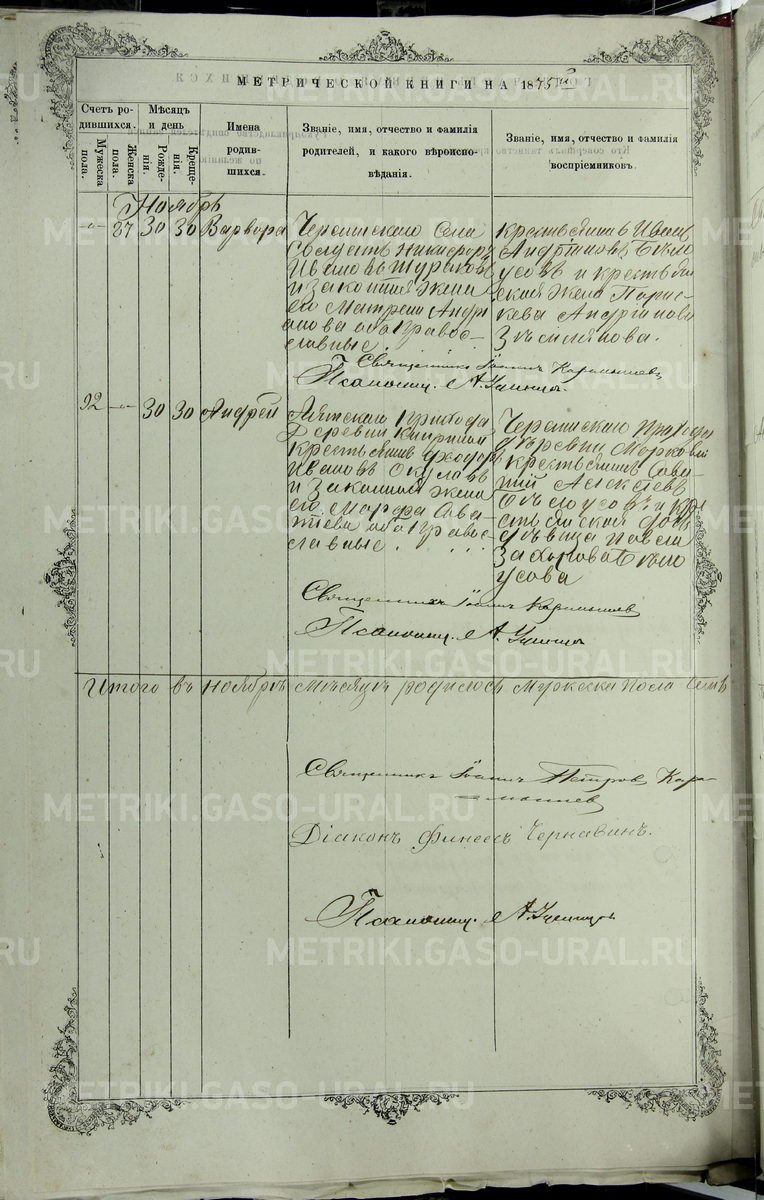 МЕТРИЧЕСКОЙ КНИГИ НА 1875 годъ
Счетъ ро-
дившихся.
Мужеска
пола.
Женска
пола.
Мѣсяцъ
и день.
Рожде-
нія.
Креще-
нія.
Имена
родив-
шихся.
Званіе, имя, отчество и фамилія
родителей, и какого вѣроиспо-
вѣданія.
Званіе, имя, отчество и фамилія
воспріемниковъ.
Ноябрь
87 30 30 Варвара
Села
Солдатъ Никифоръ
Ивановъ
и законная жена
его Матрена Андрі
анова оба право-
славные.
крестьянинъ Иванъ
Андріановъ Бѣло
усовъ и крестьян
ская жена Парас-
кева Андріанова
Священникъ Іоаннъ Карамышев
Псаломщ. А.
92 30 30 Андрей
прихода
деревни
крестьянинъ Ѳеодоръ
Ивановъ Окуловъ
и законная жена
его Марѳа Сава-
тіева оба правос-
лавные.
прихода
деревни
крестьянинъ Сава-
тій Алексѣевъ
Бѣлоусовъ и кре
стьянская дочь
дѣвица
Захарова Бѣло
усова
Священникъ Іоаннъ Карамышев
Псаломщ. А.
Итого въ ноябрѣ мѣсяцѣ родилось мужеска пола семь
Священникъ Іоаннъ Петров Кара-
мышев
Діаконъ Финеесъ Чернавинъ.
Псаломщ. А.
METRIKI.GASO-URAL.RU